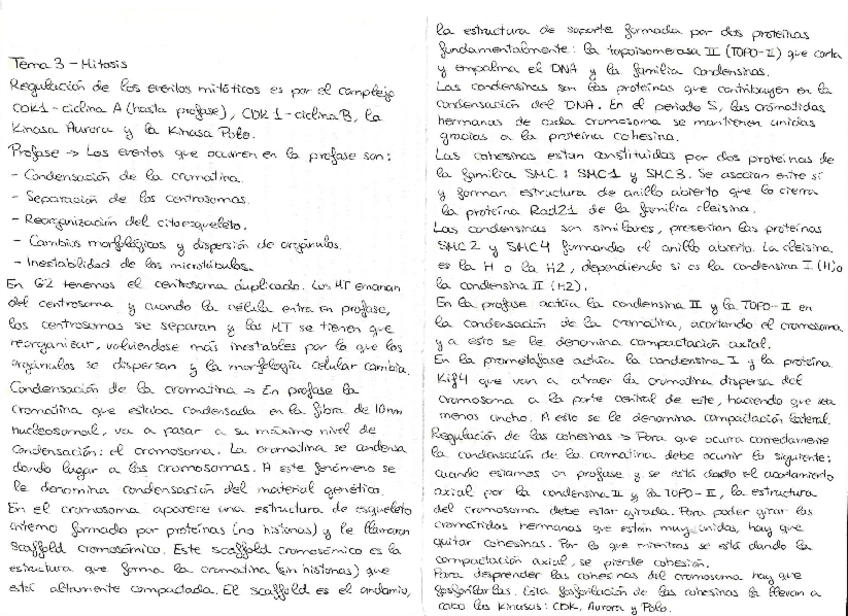 Tema 3 - Mitosis
Regulación de los eventos mitóticos es por el complejo
CDK1 - ciclina A (hasta profase), CDK 1 - ciclina B, la
Kinasa Aurora y la Kinasa Polo.
Profase -> Los eventos que ocurren en la profase son:
- Condensación de la cromatina.
- Separación de los centrosomas.
- Reorganización del citoesqueleto.
- Cambios morfológicos y dispersión de orgánulos.
- Inestabilidad de los microtúbulos.
En G2 tenemos el centrosoma duplicado. Los MT emanan
del centrosoma y cuando la célula entra en profase,
los centrosomas se separan y los MT se tienen que
reorganizar, volviendose más inestables por lo que los
orgánulos se dispersan y la morfología celular cambia.
Condensación de la cromatina -> En profase la
cromatina que estaba condensada en la fibra de 10nm
nucleosomal, va a pasar a su máximo nivel de
condensación: el cromosoma. La cromatina se condensa
dando lugar a los cromosomas. A este fenómeno se
le denomina condensación del material genético.
En el cromosoma aparece una estructura de esqueleto
interno formado por proteínas (no histonas) y le llamaron
scaffold cromosómico. Este scaffold cromosómico es la
estructura que forma la cromatina (sin histonas) que
está altamente compactada. El scaffold es el andamio,
la estructura de soporte formada por dos proteínas
fundamentalmente: la topoisomerasa II (TOPO-II) que corta
y empalma el DNA y la familia condensinas.
Las condensinas son las proteínas que contribuyen en la
condensación del DNA. En el periodo S, las cromátidas
hermanas de cada cromosoma se mantienen unidas
gracias a la proteína cohesina.
Las cohesinas están constituidas por dos proteínas de
la familia SMC: SMC1 y SMC3. Se asocian entre sí
y forman estructura de anillo abierto que lo cierra
la proteína Rad21 de la familia cleisina.
Las condensinas son similares, presentan las proteínas
SMC2 y SMC4 formando el anillo abierto. La cleisina
es la H o la H2, dependiendo si es la condensina I (H) o
la condensina II (H2).
En la profase actúa la condensina II y la TOPO-II en
la condensación de la cromatina, acortando el cromosoma
y a esto se le denomina compactación axial.
En la prometafase actúa la condensina I y la proteína
Kif4 que van a atraer la cromatina dispersa del
cromosoma a la parte central de este, haciendo que sea
menos ancho. A esto se le denomina compactación lateral.
Regulación de las cohesinas -> Para que ocurra correctamente
la condensación de la cromatina debe ocurrir lo siguiente:
cuando estamos en profase y se está dando el acortamiento
axial por la condensina II y la TOPO-II, la estructura
del cromosoma debe estar girada. Para poder girar las
cromátidas hermanas que están muy unidas, hay que
quitar cohesinas. Por lo que mientras se está dando la
compactación axial, se pierde cohesión.
Para desprender las cohesinas del cromosoma hay que
fosforilarlas. Esta fosforilación de las cohesinas la llevan a
cabo las kinasas: CDK, Aurora y Polo.